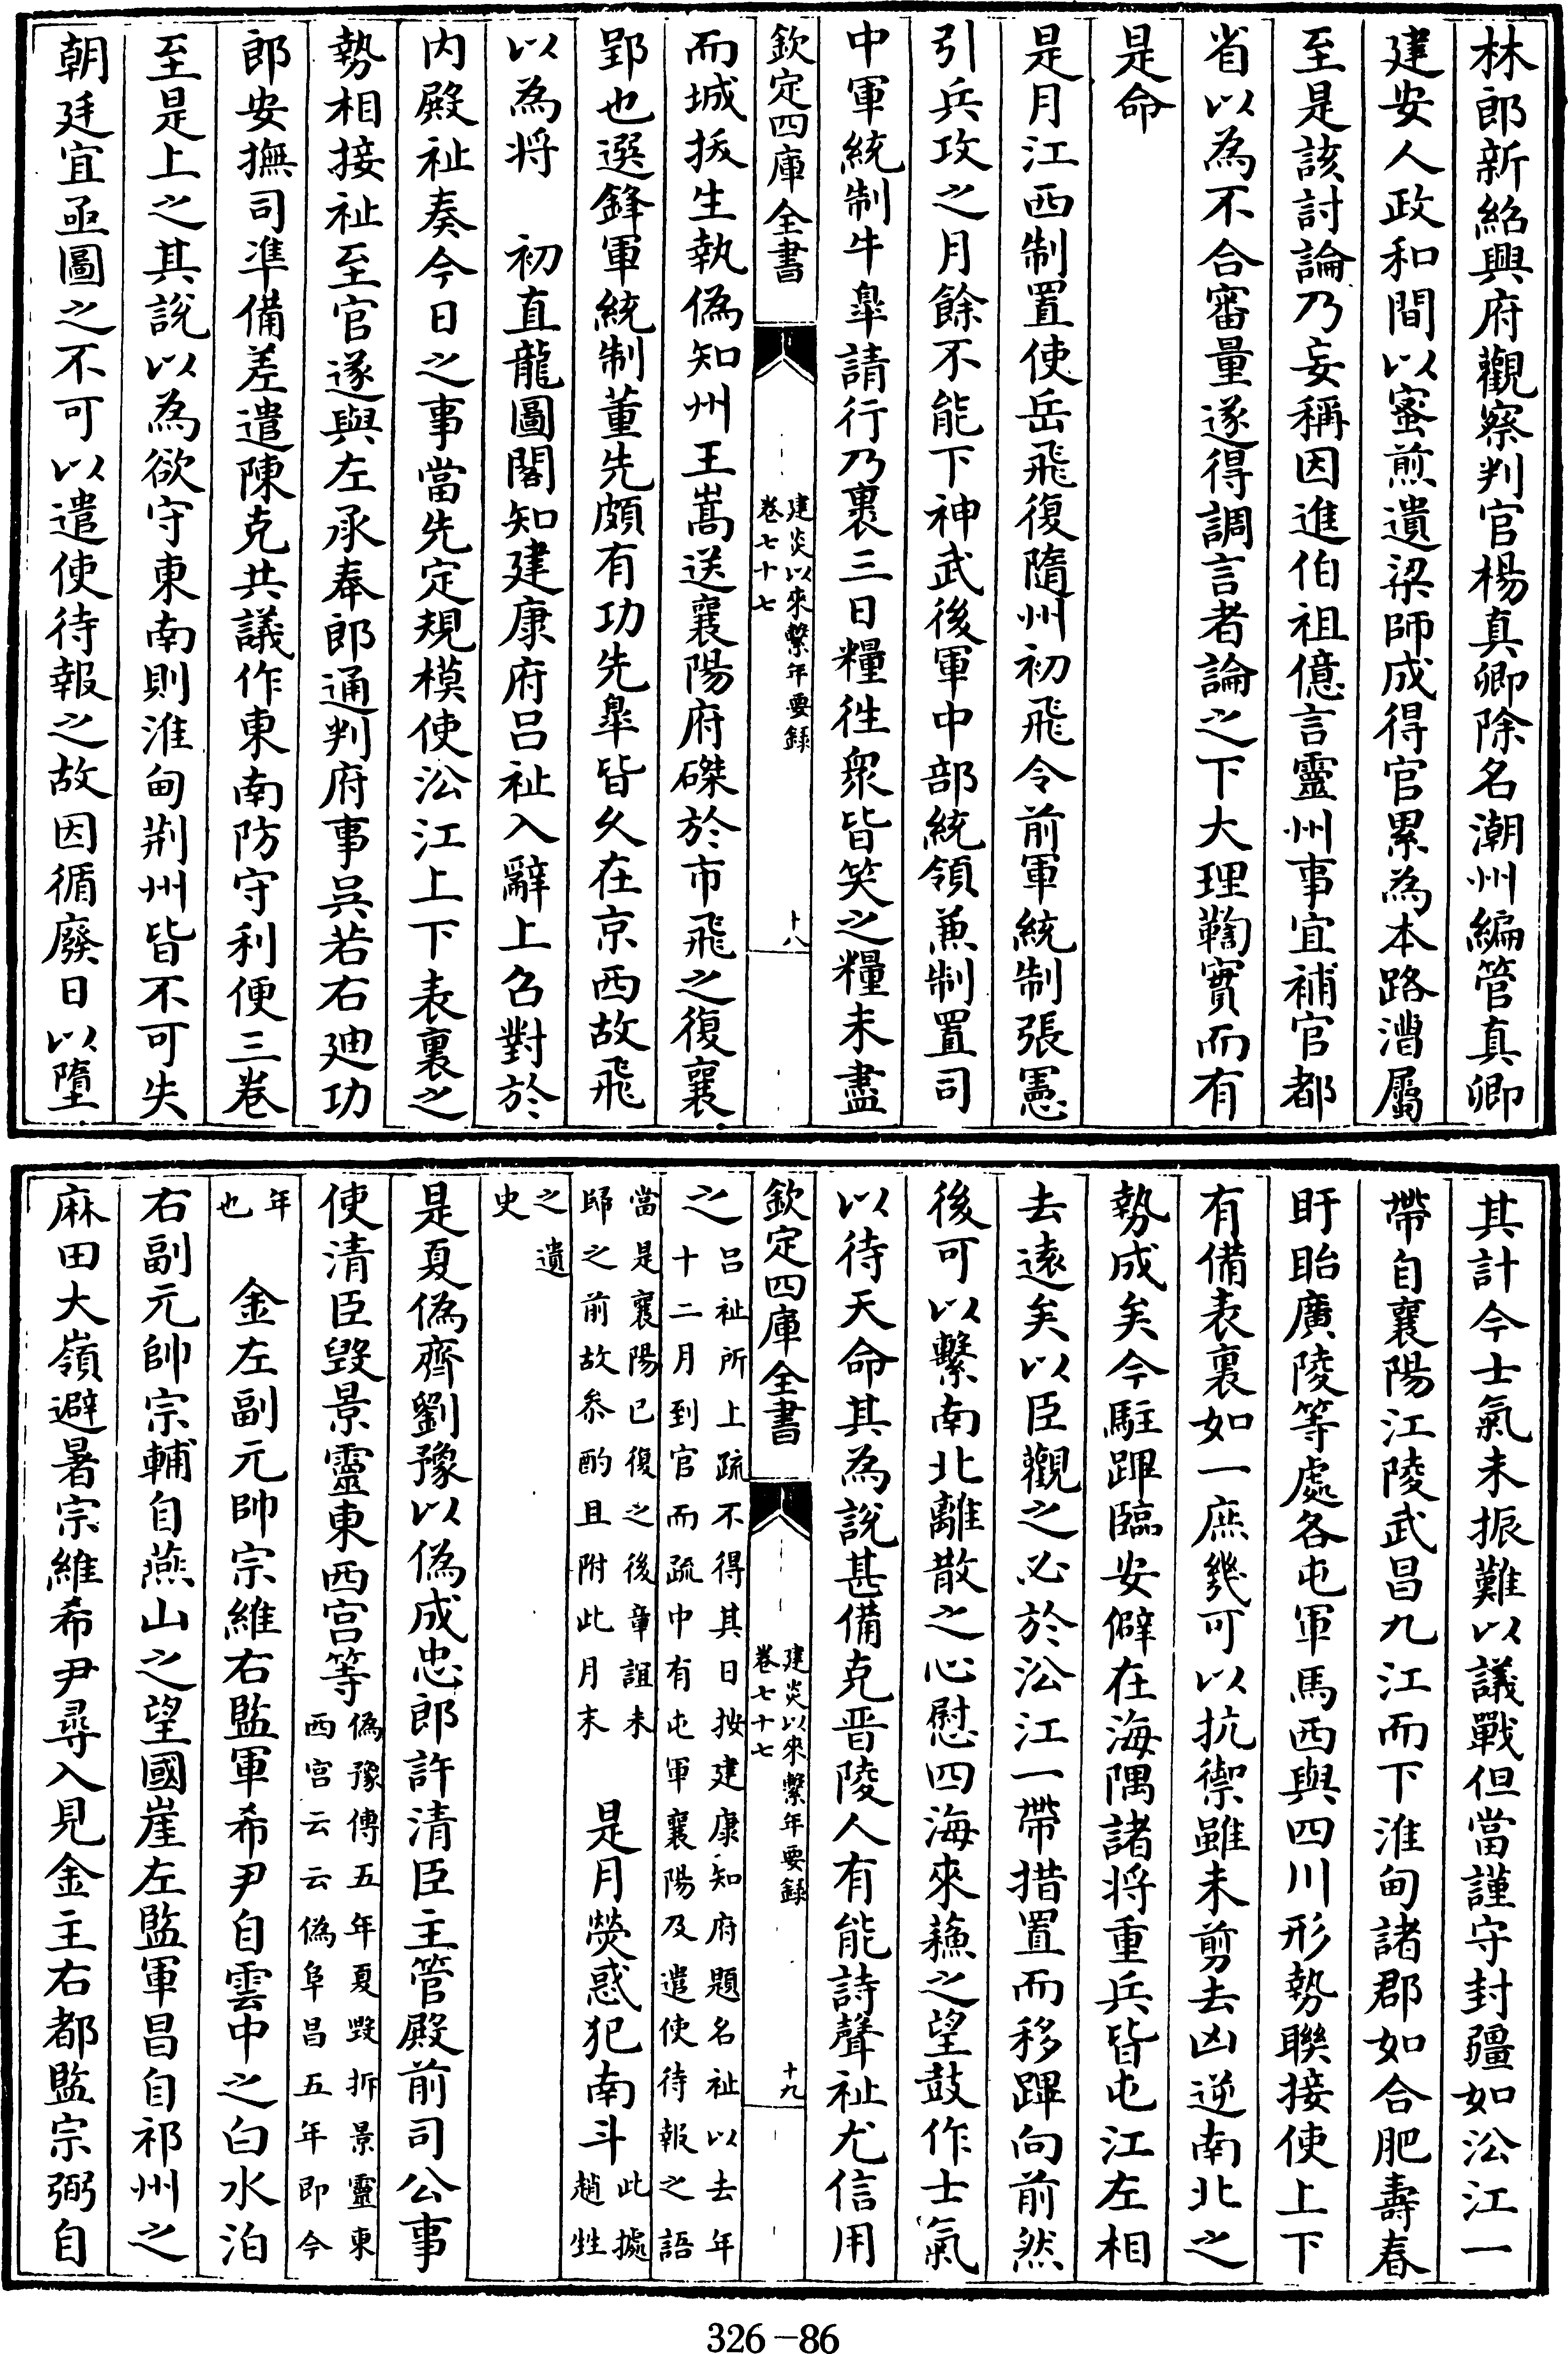 林郎新紹興府觀察判官楊真卿除名潮州編管真卿
建安人政和間以蜜煎遺梁師成得官累為本路漕屬
至是該討論乃妄稱因進伯祖億言靈州事宜補官都
省以為不合審量遂得調言者論之下大理鞫實而有
是命
是月江西制置使岳飛復隨州初飛令前軍統制張憲
引兵攻之月餘不能下神武後軍中部統領兼制置司
中軍統制牛臯請行乃裹三日糧徃衆皆笑之糧未盡
欽定四庫全書
建炎以來繫年要録
卷七十七
十八
而城拔生執偽知州王嵩送襄陽府磔於市飛之復襄
郢也選鋒軍統制董先頗有功先臯皆久在京西故飛
以為将 初直龍圖閣知建康府吕祉入辭上召對於
内殿祉奏今日之事當先定規模使㳂江上下表裏之
勢相接祉至官遂與左承奉郎通判府事吳若右廸功
郎安撫司凖備差遣陳克共議作東南防守利便三卷
至是上之其說以為欲守東南則淮甸荆州皆不可失
朝廷宜亟圖之不可以遣使待報之故因循廢日以墮
其計今士氣未振難以議戰但當謹守封疆如㳂江一
帶自襄陽江陵武昌九江而下淮甸諸郡如合肥壽春
盱眙廣陵等處各屯軍馬西與四川形勢聯接使上下
有備表裏如一庶幾可以抗禦雖未剪去凶逆南北之
勢成矣今駐蹕臨安僻在海隅諸将重兵皆屯江左相
去遠矣以臣觀之必於㳂江一帶措置而移蹕向前然
後可以繫南北離散之心慰四海來蘓之望鼓作士氣
以待天命其為說甚備克晋陵人有能詩聲祉尤信用
欽定四庫全書
建炎以來繫年要録
卷七十七
十九
之 吕祉所上疏不得其日按建康知府題名祉以去年
十二月到官而疏中有屯軍襄陽及遣使待報之語
當是襄陽已復之後章誼未
歸之前故叅酌且附此月末 是月熒惑犯南斗 此據
趙甡
之遺
史
是夏偽齊劉豫以偽成忠郎許清臣主管殿前司公事
使清臣毀景靈東西宫等 偽豫傳五年夏毀拆景靈東
西宫云云偽阜昌五年即今
年
也 金左副元帥宗維右監軍希尹自雲中之白水泊
右副元帥宗輔自燕山之望國崖左監軍昌自祁州之
麻田大嶺避暑宗維希尹尋入見金主右都監宗弼自
326-86